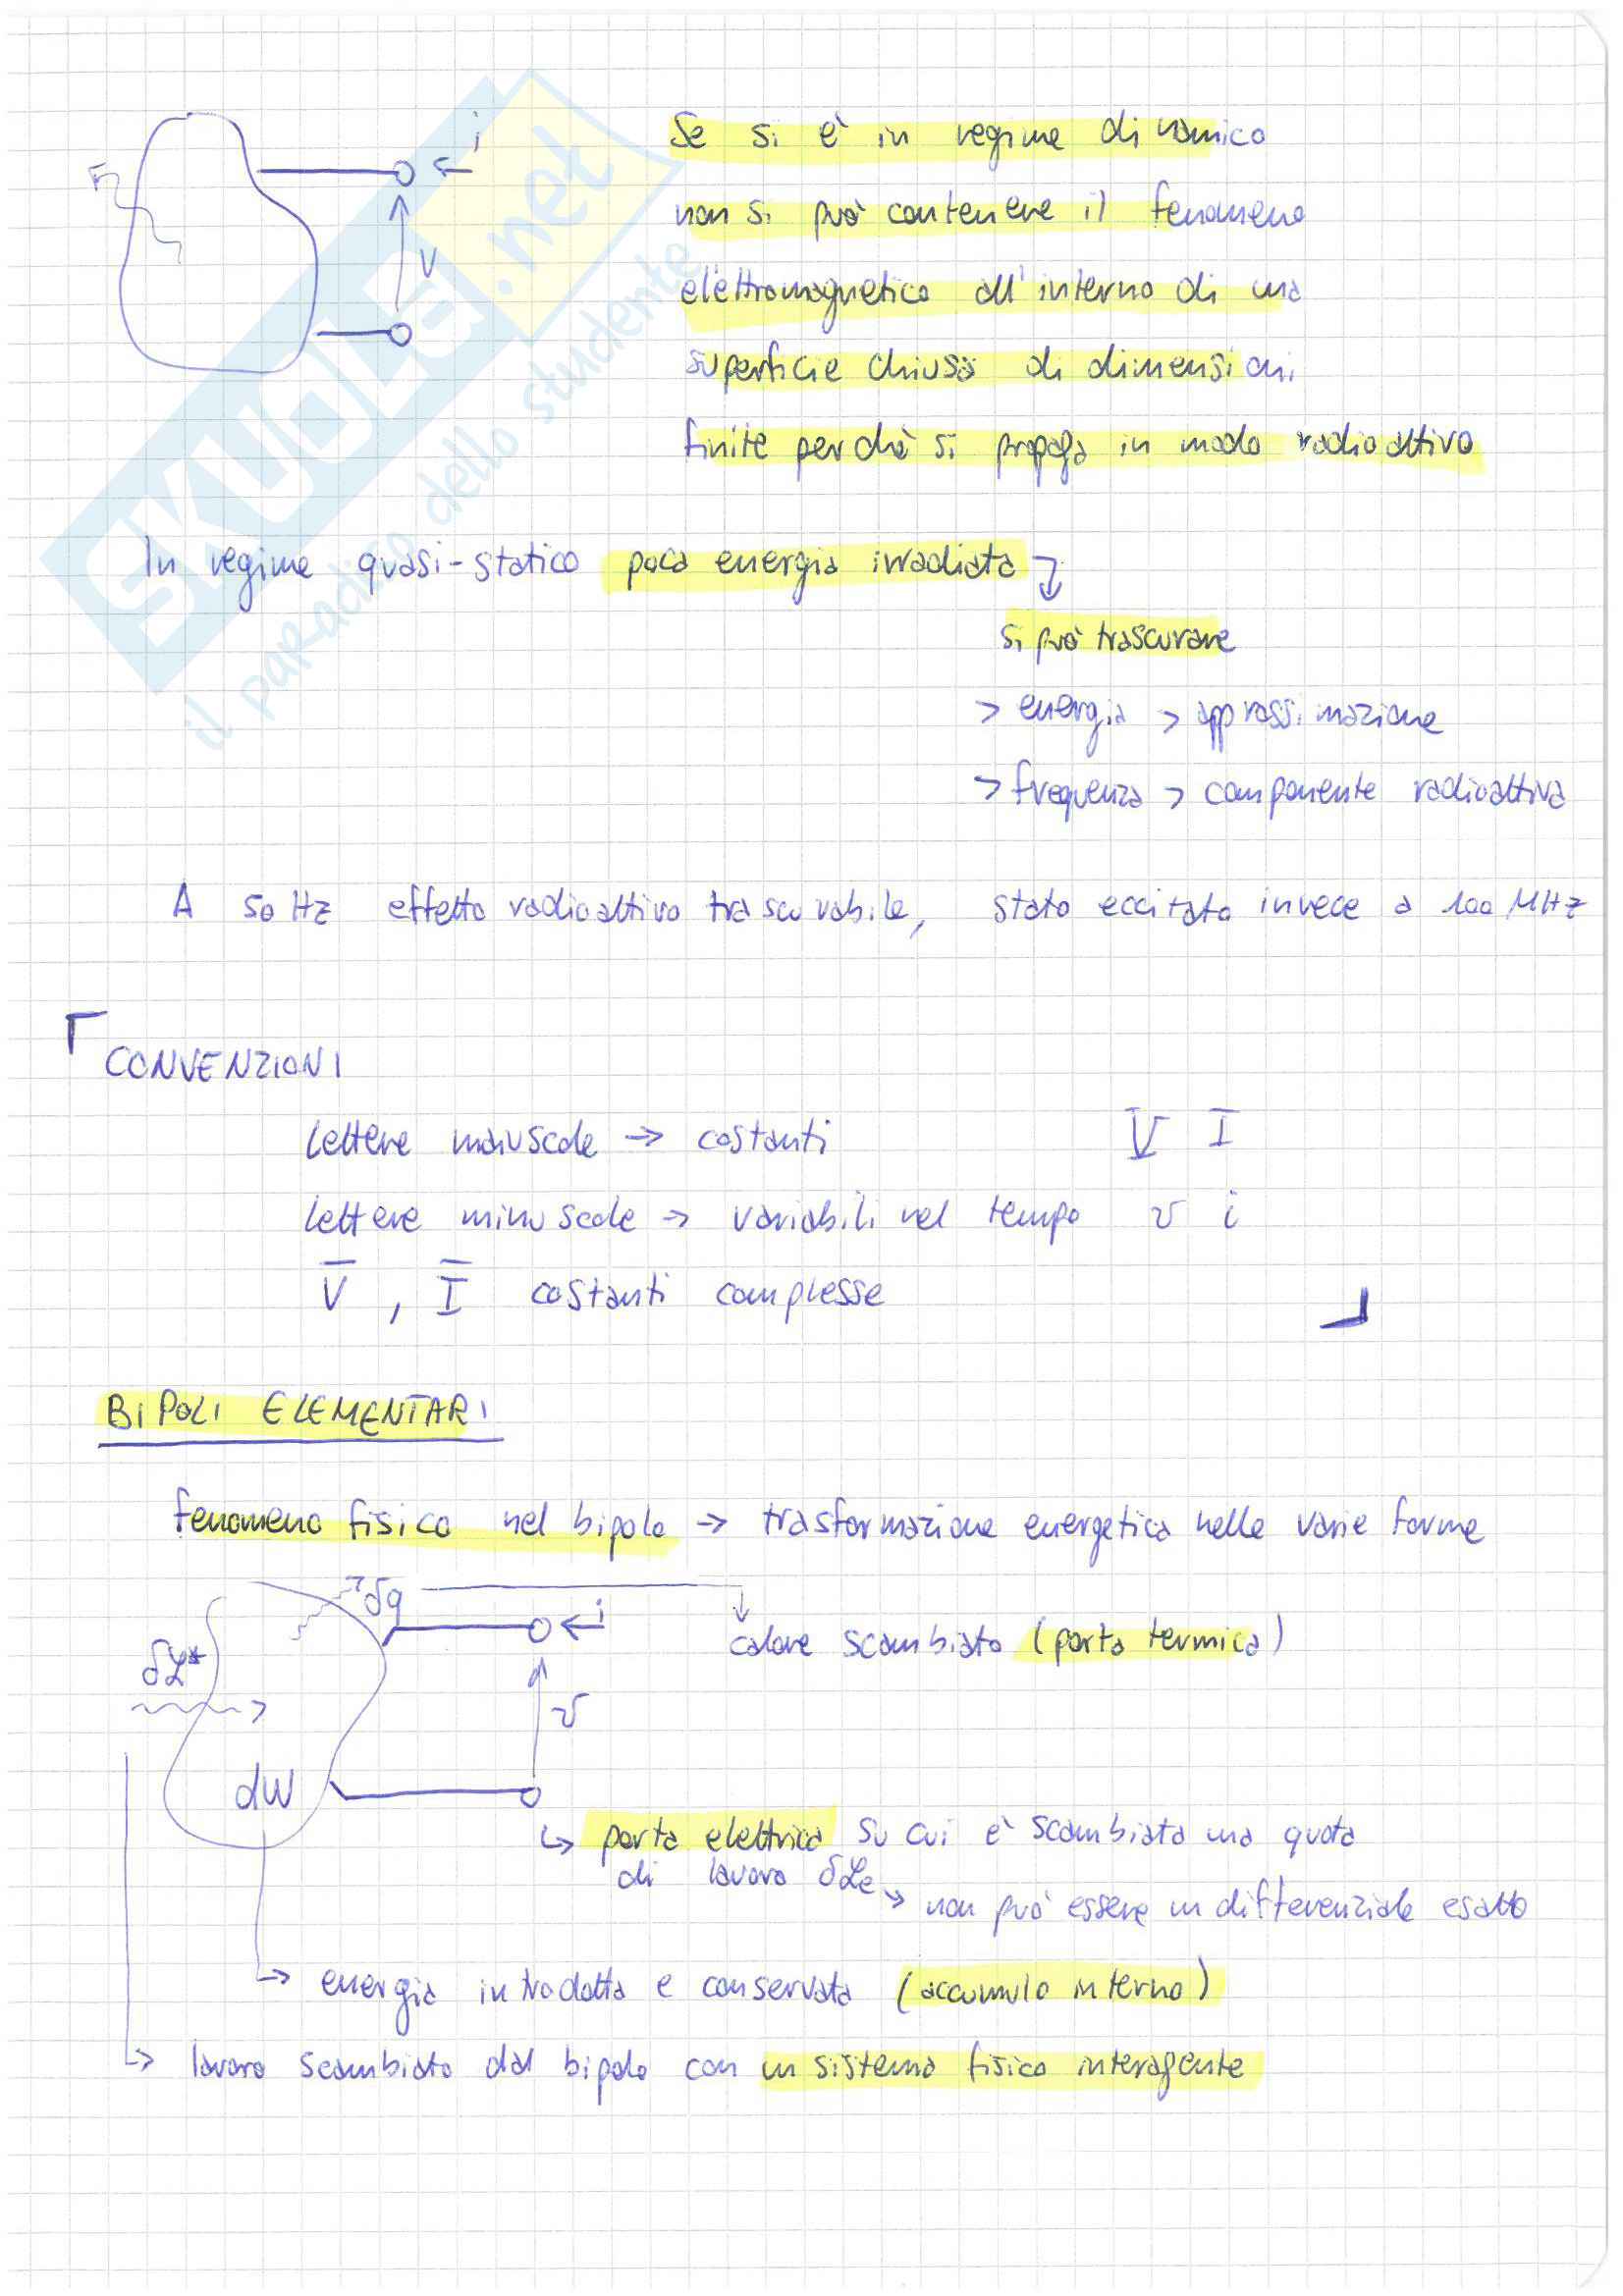 i
Se si è in regime dinamico
non si può contenere il fenomeno
V
elettromagnetico all'interno di una
superficie chiusa di dimensioni
finite perchè si propaga in modo radioattivo
SKUOLA.net
il paradiso dello studente
In regime quasi-statico poca energia irradiata
si può trascurare
> energia > approssimazione
> frequenza > componente radioattiva
A 50 Hz effetto radioattivo trascurabile, stato eccitato invece a 100 MHz
CONVENZIONI
lettere maiuscole → costanti V I
lettere minuscole → variabili nel tempo v i
V̅ , I̅ costanti complesse
BIPOLI ELEMENTARI
fenomeno fisico nel bipolo → trasformazione energetica nelle varie forme
δq
i
calore scambiato (porta termica)
δL*
v
dW
↳ porta elettrica su cui è scambiata una quota
di lavoro δLe → non può essere un differenziale esatto
↳ energia introdotta e conservata (accumulo interno)
↳ lavoro scambiato dal bipolo con un sistema fisico interagente